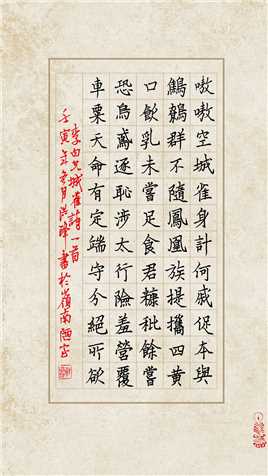 嗷嗷空城雀身計何戚促本與
鷦鷯群不隨鳳凰族提攜四黃
口飲乳未嘗足食君糠粃餘嘗
恐烏鳶逐恥涉太行險羞營覆
車粟天命有定端守分絕所欲
李白空城雀詩一首
壬寅年月書於嶺南陋室